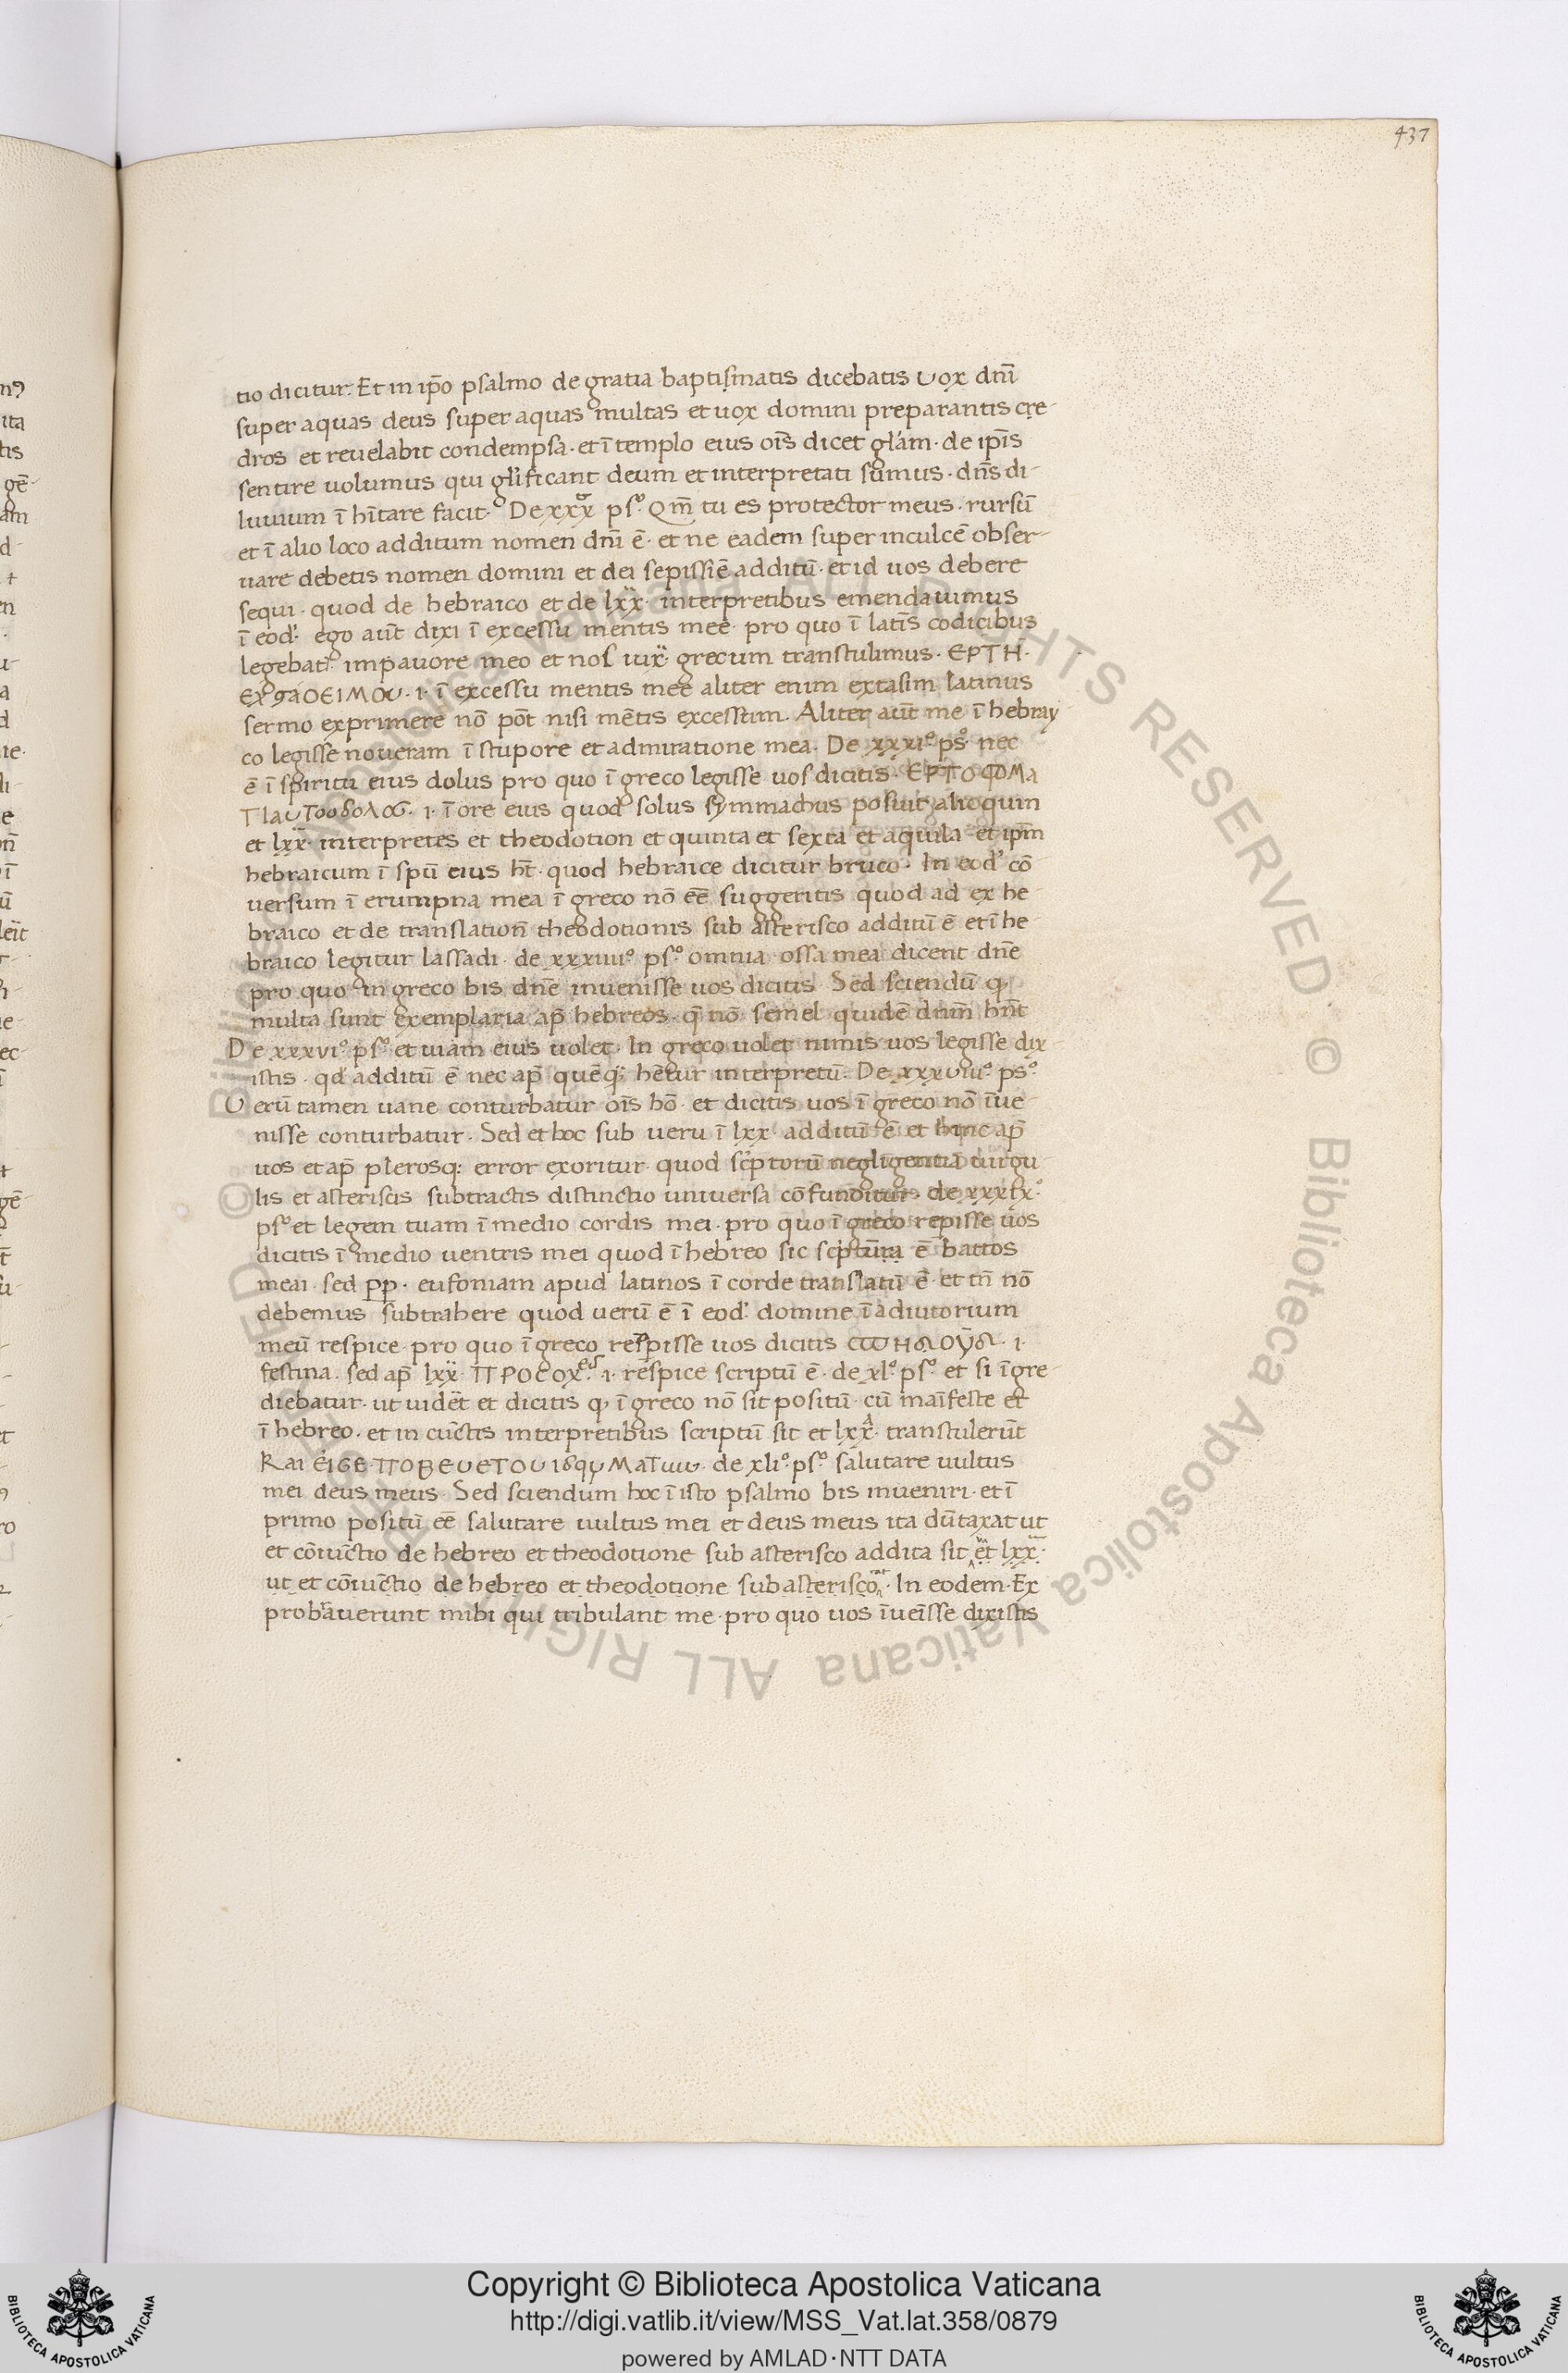 437
tio dicitur. Et in ip̄o psalmo de gratia baptismatis dicebatis uox dnī
super aquas deus super aquas multas et uox domini preparantis ce-
dros et reuelabit condempsa· et ī templo eius oīs dicet glām· de ipīs
sentire uolumus qui glīficant deum et interpretati sumus· dn̄s di-
luuium ī hītare facit· De xxx ps° Qm̄ tu es protector meus· rursū
et ī alio loco additum nomen dnī ē· et ne eadem super inculcē obser-
uare debetis nomen domini et dei sepissiē additū· et id uos debere
sequi· quod de hebraico et de lxx· interpretibus emendauimus
ī eod· ego aūt dixi ī excessu mentis mee· pro quo ī latīs codicibus
legebat· impauore meo et nos grecum transtulimus· ЄΡΤΗ·
i· ī excessu mentis mee aliter enim extasim latinus
sermo exprimere nō pōt nisi mētis excessum. Aliter aūt me ī hebray
co legisse noueram ī stupore et admiratione mea· De xxxi° ps° nec
ē ī spiritu eius dolus pro quo ī greco legisse uos dicitis·
i· ī ore eius quod solus symmachus posuit alioquin
et lxx· interpretes et theodotion et quinta et sexta et aquila et ipm̄
hebraicum ī spū eius ht̄· quod hebraice dicitur bruco· In eod' cō
uersum ī erumpna mea ī greco nō eē suggeritis quod ad ex he-
braico et de translation̄ theodotionis sub asterisco additū ē et ī he-
braico legitur lassadi· de xxxiiii° ps° omnia ossa mea dicent dn̄e
pro quo in greco bis dn̄e inuenisse uos dicitis· Sed sciendū q
multa sunt exemplaria ap̄ hebreos· q̄ nō semel quidē dnm̄ hn̄t
De xxxvi° ps° et uiam eius uolet· In greco uolet nimis uos legisse dix
istis· qd additū ē nec ap̄ quēq hētur interpretū· De xxxviii° ps°
Uerū tamen uane conturbatur oīs hō· et dicitis uos ī greco nō īue-
nisse conturbatur· Sed et hoc sub ueru ī lxx· additū ē et hinc ap̄
uos et ap̄ plerosq: error exoritur quod scptorū negligentiā uirgu
lis et asteriscis subtractis distinctio uniuersa cōfunditur· de xxxix°
ps° et legem tuam ī medio cordis mei· pro quo ī greco repisse uos
dicitis ī medio uentris mei quod ī hebreo sic scptūra ē battos
meai· sed pp· eufoniam apud latinos ī corde translatū ē· et tn̄ nō
debemus subtrahere quod uerū ē ī eod· domine ī adiutorium
meū respice· pro quo ī greco respisse uos dicitis i·
festina· sed ap̄ lxx· i· respice scriptū ē· de xl° ps° et si īgre-
diebatur· ut uidēt et dicitis q ī greco nō sit positū· cū maīfeste et
ī hebreo· et in cūctis interpretibus scriptū sit et lxx· transtulerūt
de xli° ps° salutare uultus
mei deus meus· Sed sciendum hoc ī isto psalmo bis inueniri· et ī
primo positū eē salutare uultus mei et deus meus ita dūtaxat ut
et cōiūctio de hebreo et theodotione sub asterisco addita sit et lxx·
ut et cōiūctio de hebreo et theodotione sub asterisco· In eodem· Ex
probauerunt mihi qui tribulant me· pro quo uos īueīsse dixistis
Copyright © Biblioteca Apostolica Vaticana
http://digi.vatlib.it/view/MSS_Vat.lat.358/0879
powered by AMLAD·NTT DATA
BIBLIOTECA APOSTOLICA VATICANA
BIBLIOTECA APOSTOLICA VATICANA